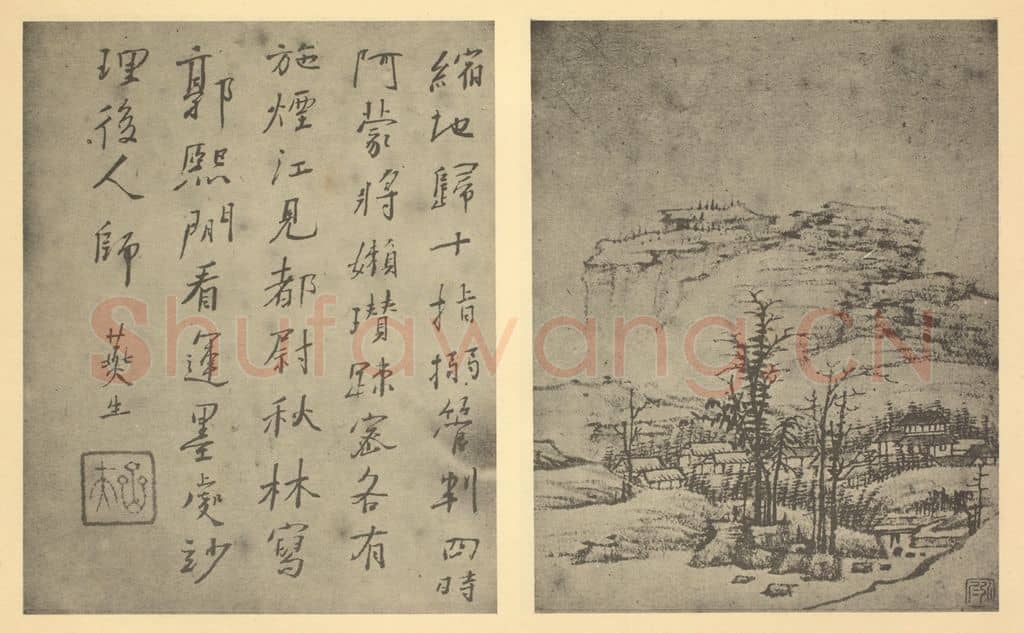 縮地歸十指搦管判四時
阿蒙將嬾瓚疎密各有
施煙江見都尉秋林寫
郭熙閒看運墨處玅
理後人師
生
Shufawang.CN